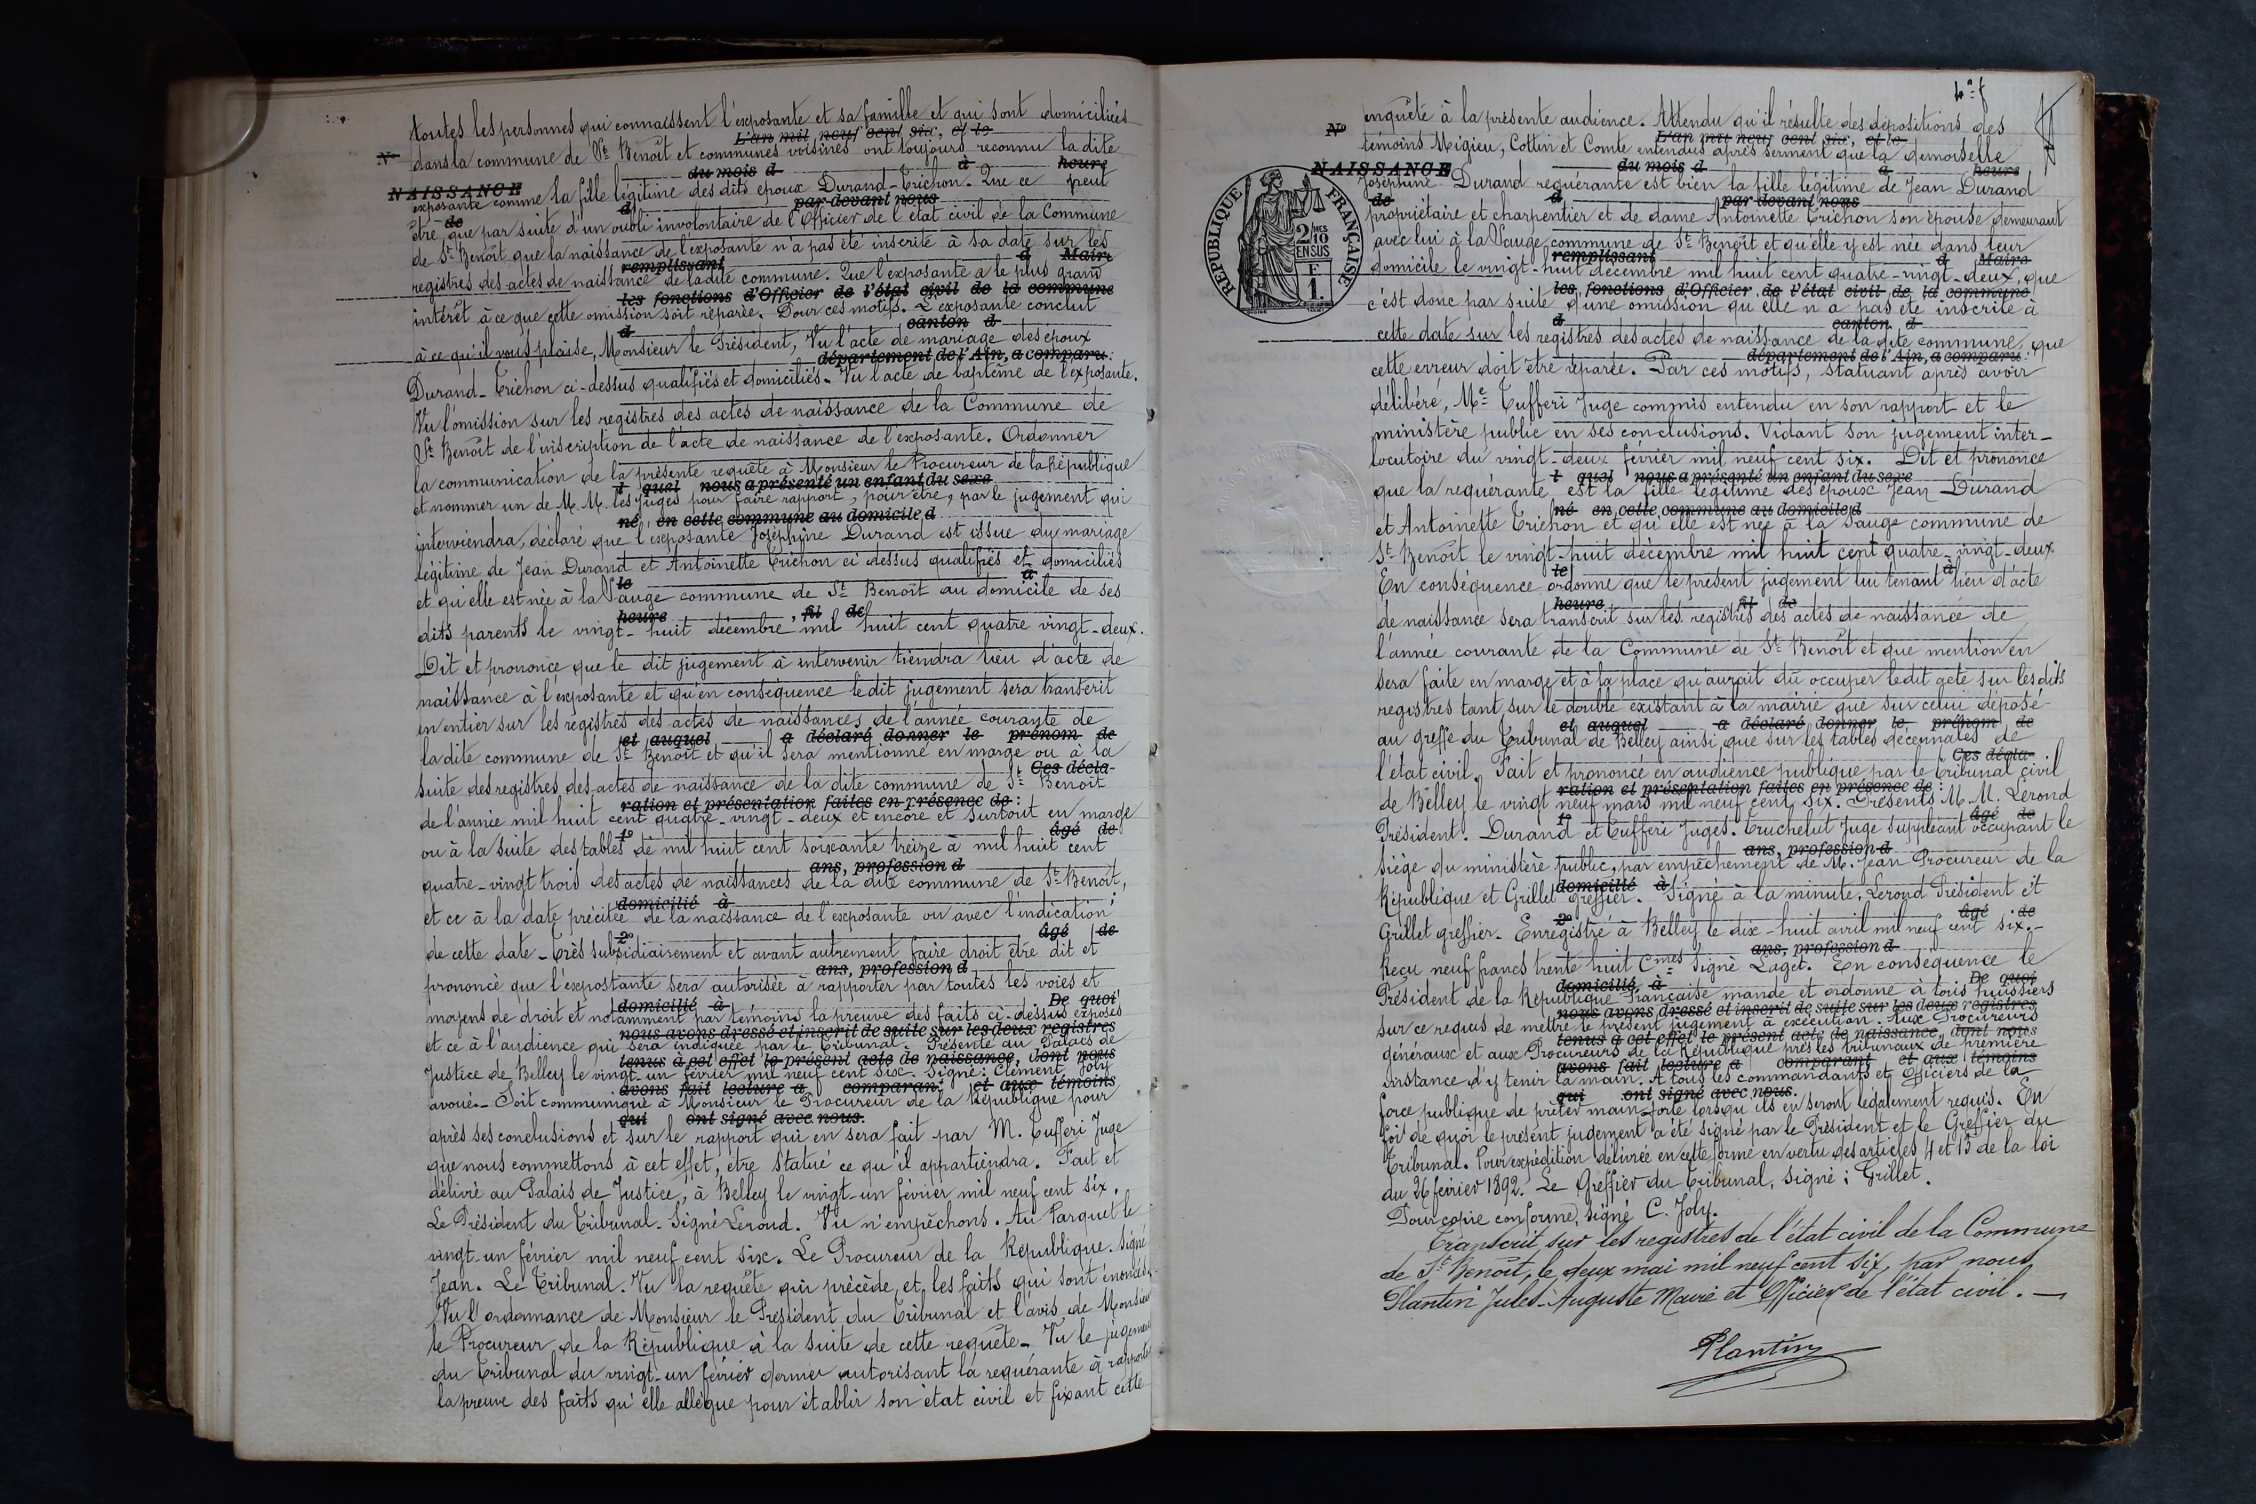 toutes les personnes qui connaissent l'exposante et sa famille et qui sont domiciliées
L'an mil neuf cent six, et le
N°
dans la commune de St Benoît et communes voisines ont toujours reconnu la dite
du mois d à heure
NAISSANCE
exposante comme la fille légitime des dits époux Durand-Trichon. Que ce peut
de d par devant nous
être que par suite d'un oubli involontaire de l'Officier de l'état civil de la Commune
de St Benoît que la naissance de l'exposante n'a pas été inscrite à sa date sur les
remplissant d Maire
registres des actes de naissance de ladite commune. Que l'exposante a le plus grand
les fonctions d'Officier de l'état civil de la commune
intérêt à ce que cette omission soit réparée. Pour ces motifs. L'exposante conclut
d canton d
à ce qu'il vous plaise, Monsieur le Président, Vu l'acte de mariage des époux
département de l'Ain, a comparu:
Durand-Trichon ci-dessus qualifiés et domiciliés. Vu l'acte de baptême de l'exposante.
Vu l'omission sur les registres des actes de naissance de la Commune de
St Benoît de l'inscription de l'acte de naissance de l'exposante. Ordonner
la communication de la présente requête à Monsieur le Procureur de la République
t quel nous a présenté un enfant du sexe
et nommer un de M.M. les Juges pour faire rapport, pour être, par le jugement qui
né en cette commune au domicile d
interviendra, déclaré que l'exposante Joséphine Durand est issue du mariage
légitime de Jean Durand et Antoinette Trichon ci dessus qualifiés et domiciliés
le à
et qu'elle est née à la Sauge commune de St Benoît au domicile de ses
heure , fil de
dits parents le vingt-huit décembre mil huit cent quatre vingt-deux.
Dit et prononce que le dit jugement à intervenir tiendra lieu d'acte de
naissance à l'exposante et qu'en conséquence le dit jugement sera transcrit
en entier sur les registres des actes de naissances de l'année courante de
et auquel a déclaré donner le prénom de
la dite commune de St Benoît et qu'il sera mentionné en marge ou à la
Ces décla-
suite des registres des actes de naissance de la dite commune de St Benoît
ration et présentation faites en présence de:
de l'année mil huit cent quatre-vingt-deux et encore et surtout en marge
1° âgé de
ou à la suite des tables de mil huit cent soixante treize à mil huit cent
ans, profession d
quatre-vingt trois des actes de naissances de la dite commune de St Benoît,
domicilié à
et ce à la date précitée de la naissance de l'exposante ou avec l'indication
2° âgé de
de cette date. Très subsidiairement et avant autrement faire droit être dit et
ans, profession d
prononcé que l'exposante sera autorisée à rapporter par toutes les voies et
domicilié à De quoi
moyens de droit et notamment par témoins la preuve des faits ci-dessus exposés
nous avons dressé et inscrit de suite sur les deux registres
et ce à l'audience qui sera indiquée par le Tribunal. Présenté au Palais de
tenus à cet effet le présent acte de naissance, dont nous
Justice de Belley le vingt-un février mil neuf cent six. Signé: Clément Joly
avons fait lecture a comparant et aux témoins
avoué. Soit communiqué à Monsieur le Procureur de la République pour
qui ont signé avec nous.
après ses conclusions et sur le rapport qui en sera fait par M. Tufferi Juge
que nous commettons à cet effet, être statué ce qu'il appartiendra. Fait et
délivré au Palais de Justice, à Belley le vingt-un février mil neuf cent six.
Le Président du Tribunal. Signé Lerond. Vu n'empêchons. Au Parquet le
vingt-un février mil neuf cent six. Le Procureur de la République. Signé
Jean. Le Tribunal. Vu la requête qui précède et les faits qui sont énoncés.
Vu l'ordonnance de Monsieur le Président du Tribunal et l'avis de Monsieur
le Procureur de la République à la suite de cette requête. Vu le jugement
du Tribunal du vingt-un février dernier autorisant la requérante à rapporter
la preuve des faits qu'elle allègue pour établir son état civil et fixant cette
4e f
enquête à la présente audience. Attendu qu'il résulte des dépositions des
N° L'an mil neuf cent six, et le
témoins Mégieu, Cottin et Comte entendus après serment que la demoiselle
NAISSANCE du mois d à heure
Joséphine Durand requérante est bien la fille légitime de Jean Durand
de d par devant nous
propriétaire et charpentier et de dame Antoinette Trichon son épouse demeurant
avec lui à la Sauge commune de St Benoît et qu'elle y est née dans leur
remplissant d Maire
domicile le vingt-huit décembre mil huit cent quatre-vingt-deux, que
les fonctions d'Officier de l'état civil de la commune
c'est donc par suite d'une omission qu'elle n'a pas été inscrite à
d canton d
cette date sur les registres des actes de naissance de la dite commune, que
département de l'Ain, a comparu:
cette erreur doit être réparée. Par ces motifs, statuant après avoir
délibéré, Me Tufferi Juge commis entendu en son rapport et le
ministère public en ses conclusions. Vidant son jugement inter-
locutoire du vingt-deux février mil neuf cent six. Dit et prononce
t quel nous a présenté un enfant du sexe
que la requérante est la fille légitime des époux Jean Durand
né en cette commune au domicile d
et Antoinette Trichon et qu'elle est née à la Sauge commune de
St Benoît le vingt-huit décembre mil huit cent quatre-vingt-deux
le à
En conséquence ordonne que le présent jugement lui tenant lieu d'acte
heure fil de
de naissance sera transcrit sur les registres des actes de naissance de
l'année courante de la Commune de St Benoît et que mention en
sera faite en marge et à la place qu'aurait dû occuper ledit acte sur les dits
registres tant sur le double existant à la mairie que sur celui déposé
et auquel a déclaré donner le prénom de
au greffe du Tribunal de Belley ainsi que sur les tables décennales de
Ces décla-
l'état civil. Fait et prononcé en audience publique par le Tribunal civil
ration et présentation faites en présence de:
de Belley le vingt neuf mars mil neuf cent six. Présents M.M. Lerond
1° âgé de
Président. Durand et Tufferi Juges. Truchelut Juge suppléant occupant le
ans, profession d
siège du ministère public, par empêchement de M. Jean Procureur de la
domicilié à
République et Grillet greffier. Signé à la minute. Lerond Président et
2° âgé de
Grillet greffier. Enregistré à Belley le dix-huit avril mil neuf cent six.
ans, profession d
Reçu neuf francs trente huit cmes Signé Laget. En conséquence le
domicilié à De quoi
Président de la République Française mande et ordonne à tous huissiers
nous avons dressé et inscrit de suite sur les deux registres
sur ce requis de mettre le présent jugement à exécution. Aux Procureurs
tenus à cet effet le présent acte de naissance, dont nous
généraux et aux Procureurs de la République près les tribunaux de première
avons fait lecture a comparant et aux témoins
instance d'y tenir la main. A tous les commandants et Officiers de la
qui ont signé avec nous.
force publique de prêter main-forte lorsqu'ils en seront légalement requis. En
foi de quoi le présent jugement a été signé par le Président et le Greffier du
Tribunal. Pour expédition délivrée en cette forme en vertu des articles 4 et 13 de la loi
du 26 février 1892. Le Greffier du Tribunal, signé: Grillet.
Pour copie conforme, signé C. Joly.
Transcrit sur les registres de l'état civil de la Commune
de St Benoît, le deux mai mil neuf cent six, par nous
Plantin Jules-Auguste Maire et Officier de l'état civil.
Plantin
RÉPUBLIQUE FRANÇAISE
2/10 EN SUS
F
1.